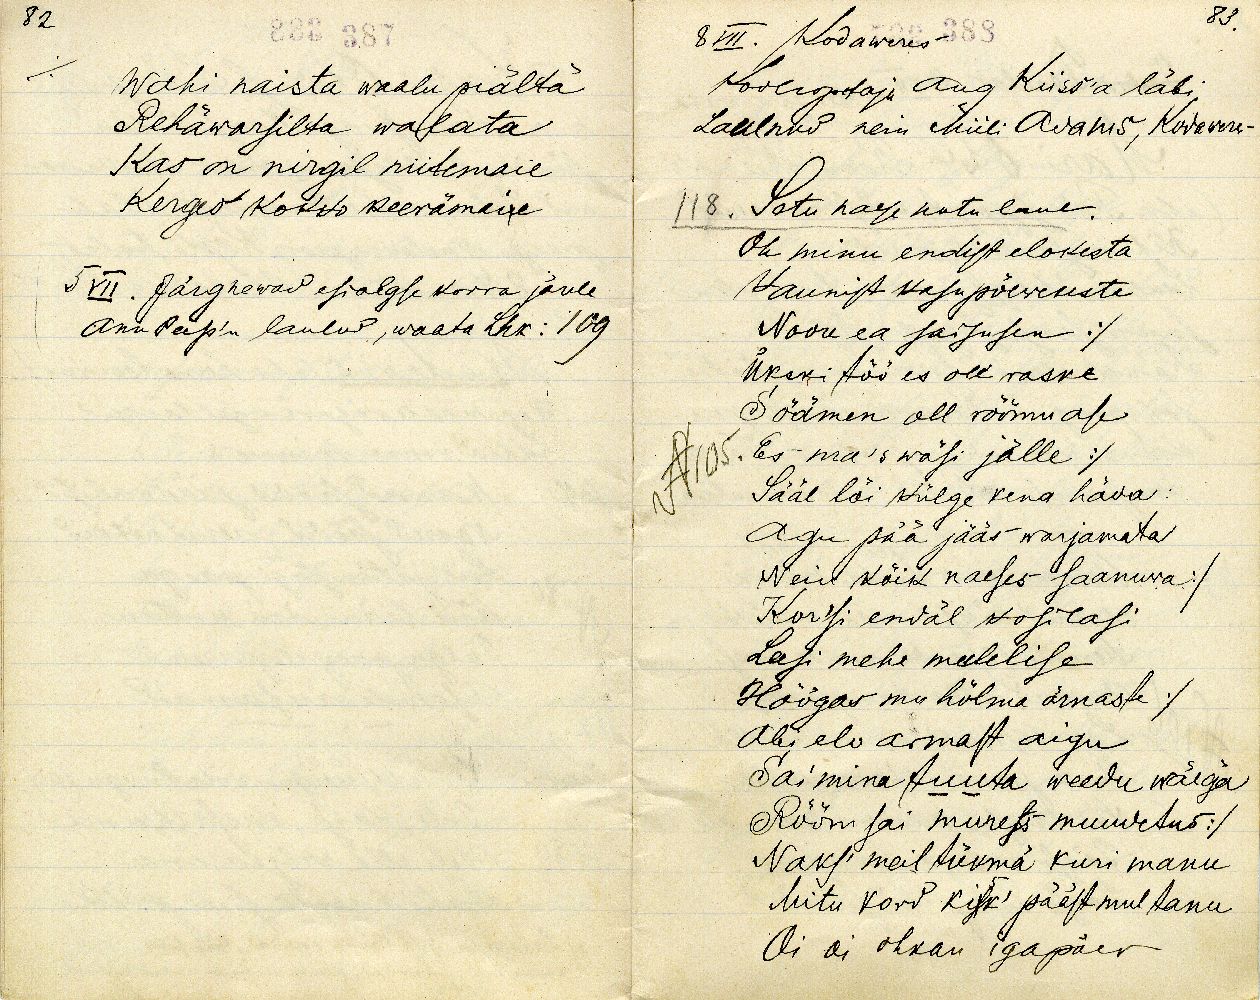 82
887
Wahi naista waalu piältä
Rehäwarsilta walata
Kas on nirgil niitemaie
Kerges kokko keerämaie
5 VII. Järgnewad esialgse korra järele
Ann Peip'u laulud, waata Lhk: 109
83.
888
8 VII. Kodaweres
Kooliõpetaja Aug Kiiss'a läbi
Laulnud nein Miili Adams, Kodawere-
118. Satu naese nutu laul.
Oh minu endist elokesta
Kaunist kasupõlwekeste
Noore ea saisusen :/
Ükski töö es oll raske
Söämen oll rõõmuase
Es ma's wäsi jälle :/
№ 105.
Sääl lõi külge kena häda:
Agu pää jääs warjamata
Nein kõik naeses saanuwa :/
Korjsi endäl kosilasi
Lasi mehe meelelise
Höögas mu hõlma õrnaste :/
Abielo armast aigu
Sai mina tuuta weedu wäega
Rõõm sai mures muudetus :/
Naks' meil tükmä kuri manu
Mitu kord kisk' pääst mul tanu
Oi oi ohkan igapäew